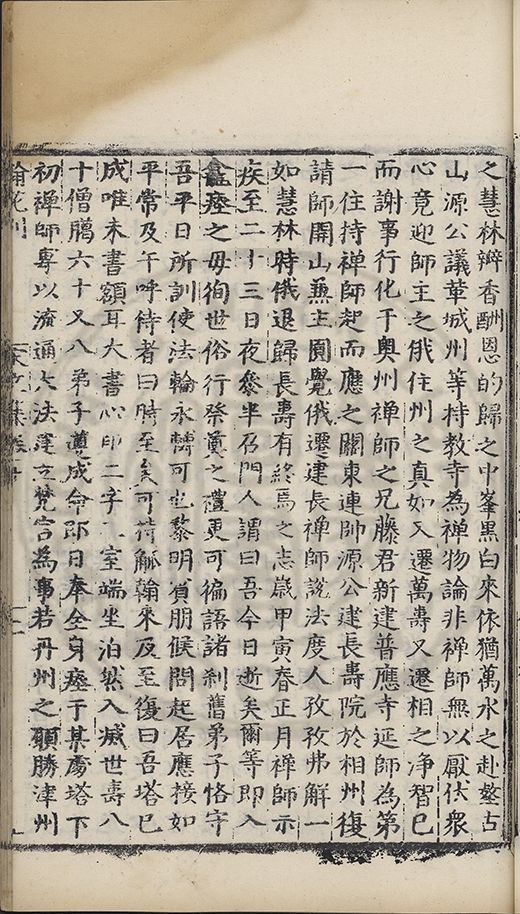 之慧林辯香酬恩的歸之中峯黑白來依猶萬水之赴壑古
山源公議革城州等持教寺為禅物論非禅師無以厭伏衆
心竟迎師主之俄住州之真如又遷萬壽又遷相之净智已
而謝事行化于奥州禅師之兄藤君新建普應寺延師為第
一住持禅師起而應之關東連帥源公建長壽院於相州復
請師開山兼主圓覺俄遷建長禅師說法度人孜孜弗解一
如慧林時俄退歸長壽有終焉之志歲甲寅春正月禅師示
疾至二十三日夜叅半召門人謂曰吾今日逝矣爾等即入
龕瘞之毋徇世俗行祭奠之禮更可徧語諸刹舊弟子恪守
吾平日所訓使法輪永轉可也黎明賓朋候問起居應接如
平常及午呼侍者曰時至矣可持觚翰來及至復曰吾塔已
成唯未書額耳大書心印二字入室端坐泊然入滅世壽八
十僧臈六十又八弟子遵成命即日奉全身瘞于某處塔下
初禅師專以流通大法建立梵宫為事若丹州之願勝津州